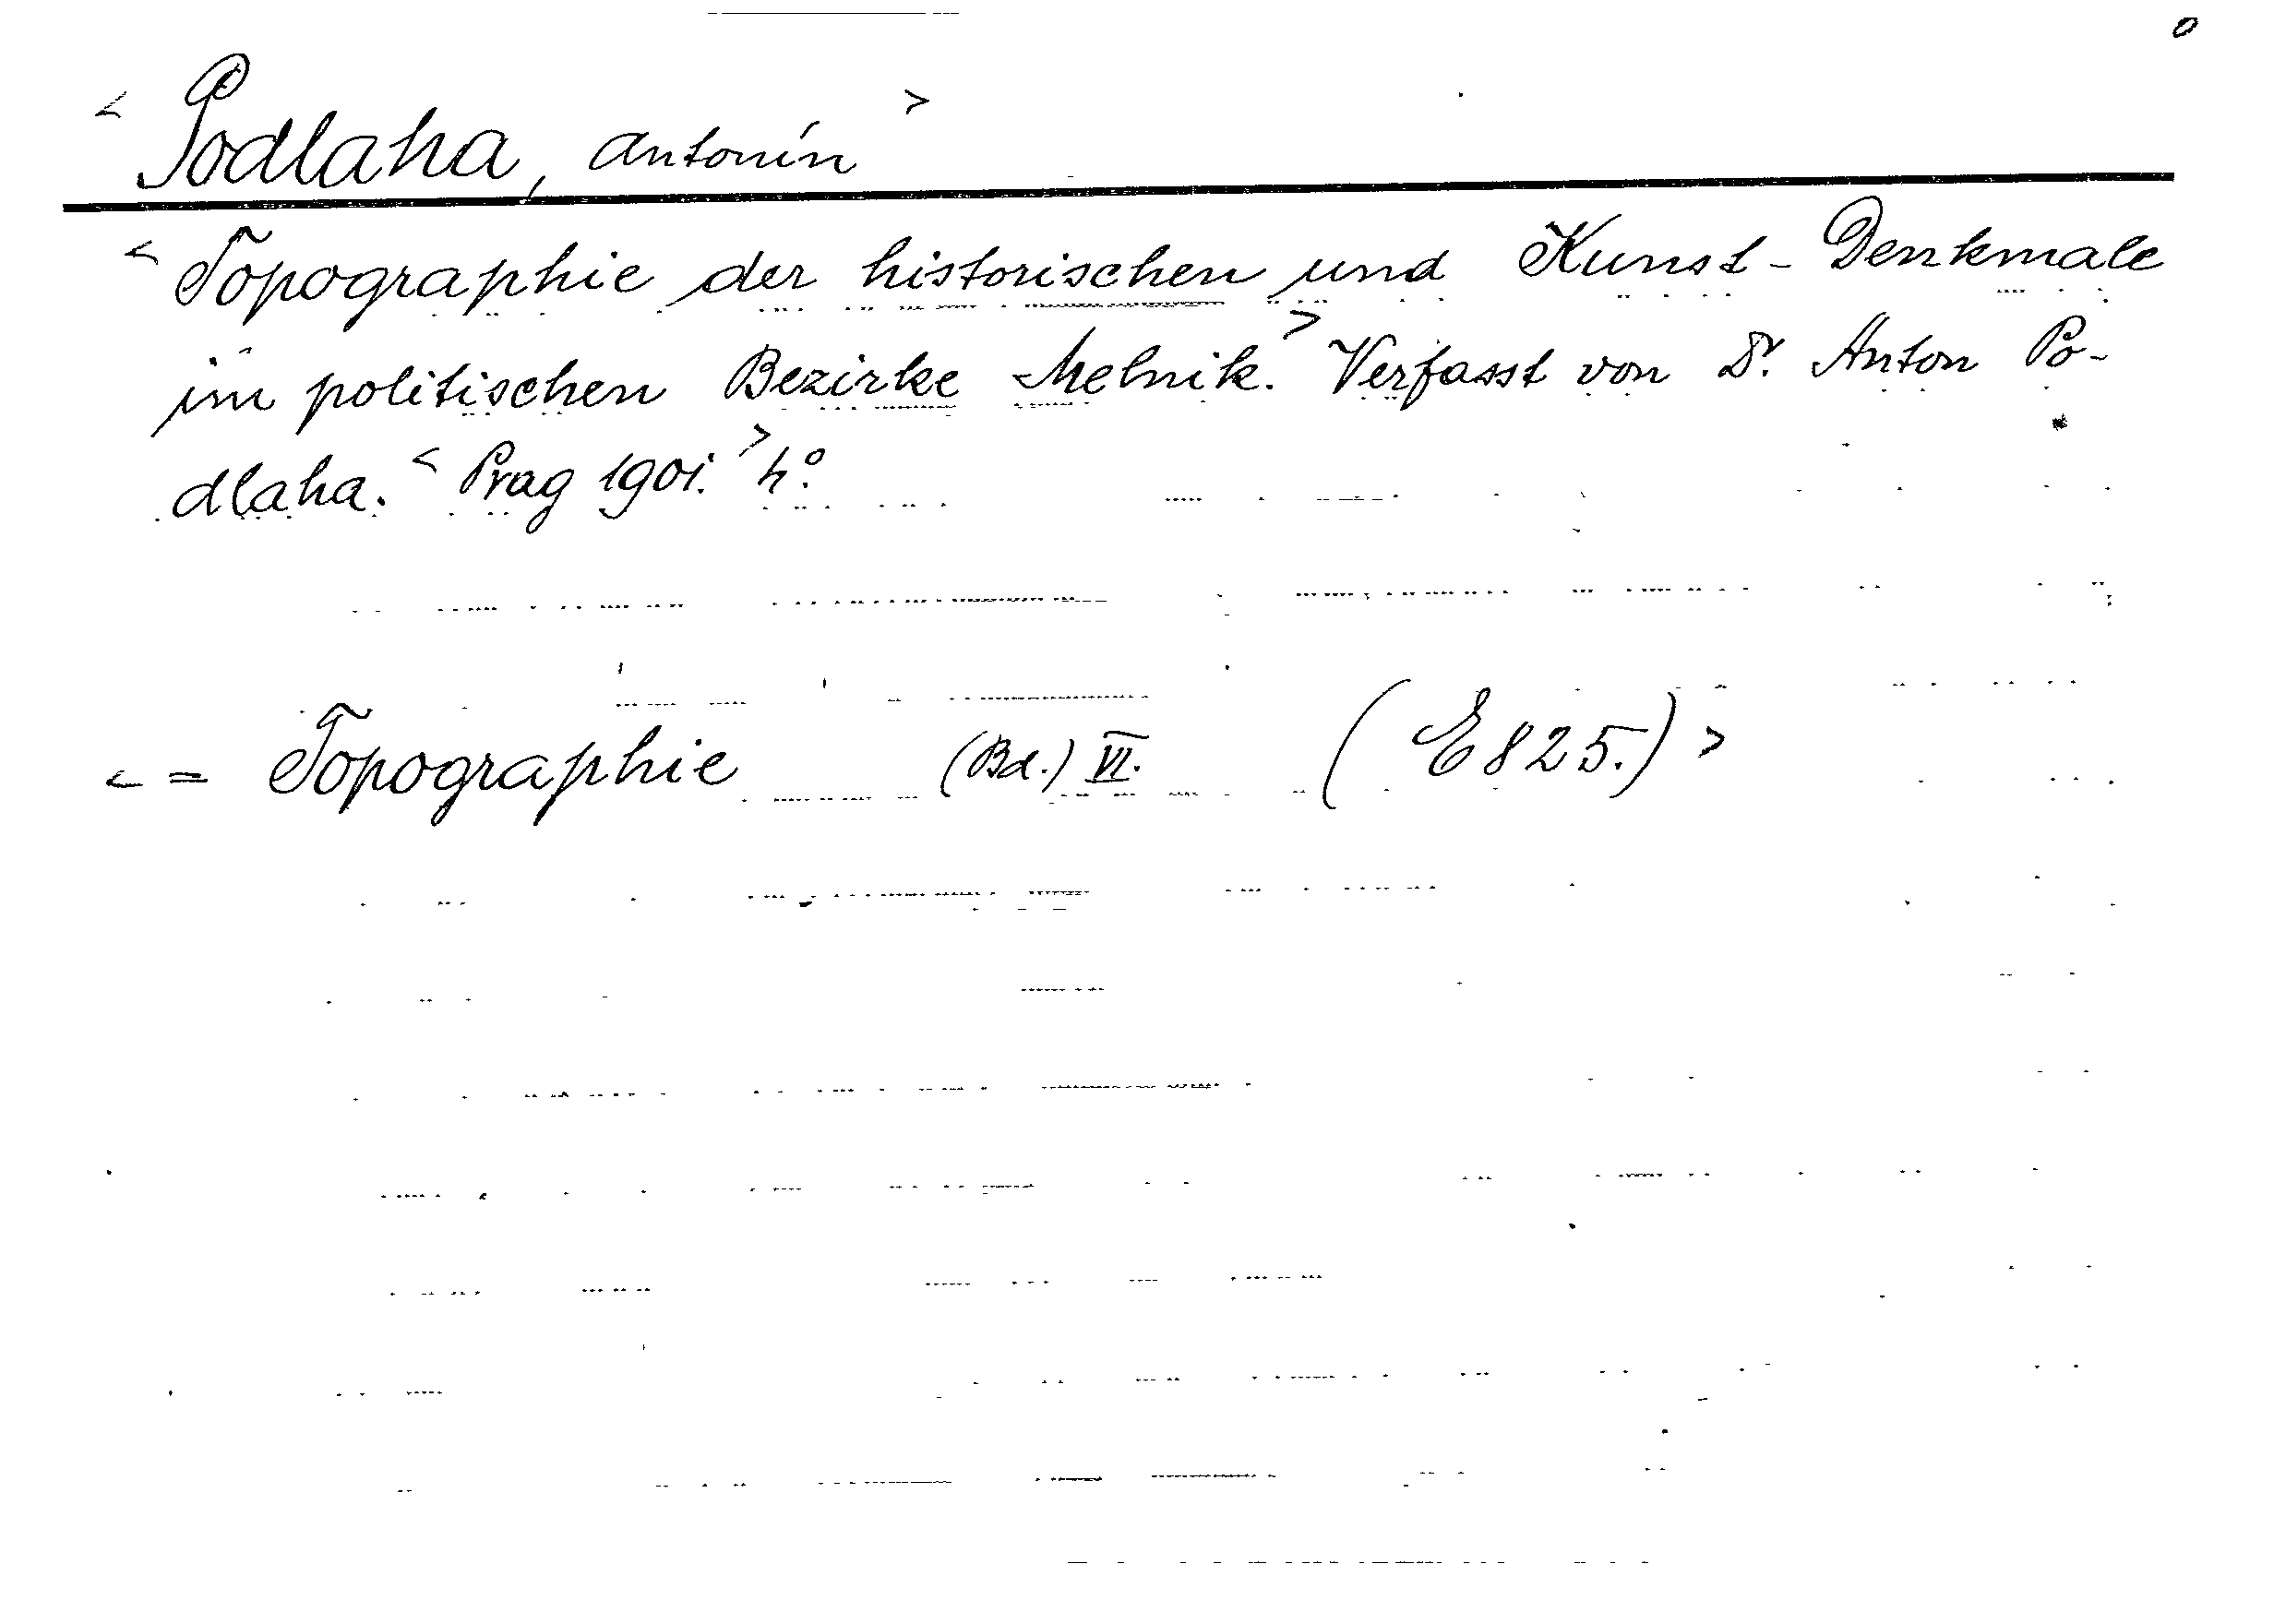 0
< Podlaha, Antonín >
< Topographie der historischen und Kunst-Denkmale
im politischen Bezirke Melnik. > Verfasst von Dr. Anton Po-
dlaha. < Prag 1901. > 4°.
< = Topographie (Bd.) VI. (E 825.) >